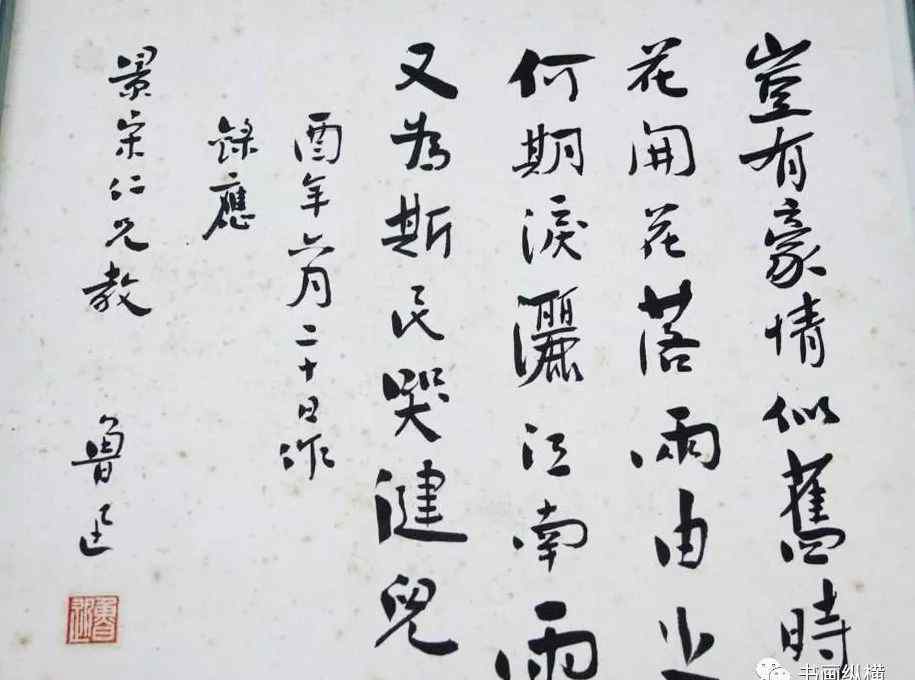 豈有豪情似舊時
花開花落兩由之
何期淚灑江南雨
又為斯民哭健兒
酉年六月二十日作
錄應
景宋仁兄教
魯迅
魯迅
书画纵横